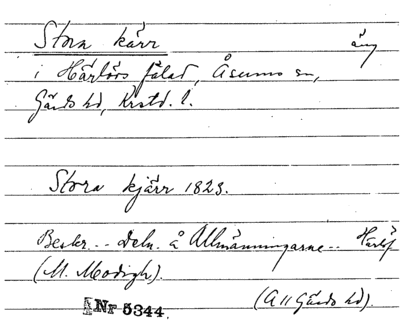 Stora kärr äng
i Härlövs fälad, Åsumo sn,
Gärds hd, Krstd. l.
Stora kjärr 1823.
Beskr. -- Deln. å Allmänningarne --
(M. Modigh).
Nr 5344. (A 11 Gärds hd).